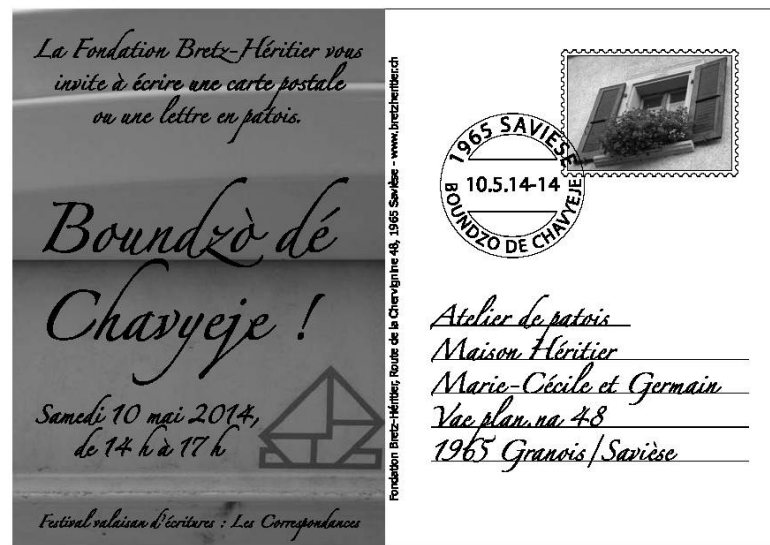 La Fondation Bretz-Héritier vous
invite à écrire une carte postale
ou une lettre en patois.
Boundzò dé
Chavyeje !
Samedi 10 mai 2014,
de 14 h à 17 h
Festival valaisan d'écritures : Les Correspondances
Fondation Bretz-Héritier, Route de la Chervignine 48, 1965 Savièse - www.bretzheritier.ch
1965 SAVIESE
10.5.14-14
BOUNDZO DE CHAVYEJE
Atelier de patois
Maison Héritier
Marie-Cécile et Germain
Vae plan.na 48
1965 Granois/Savièse